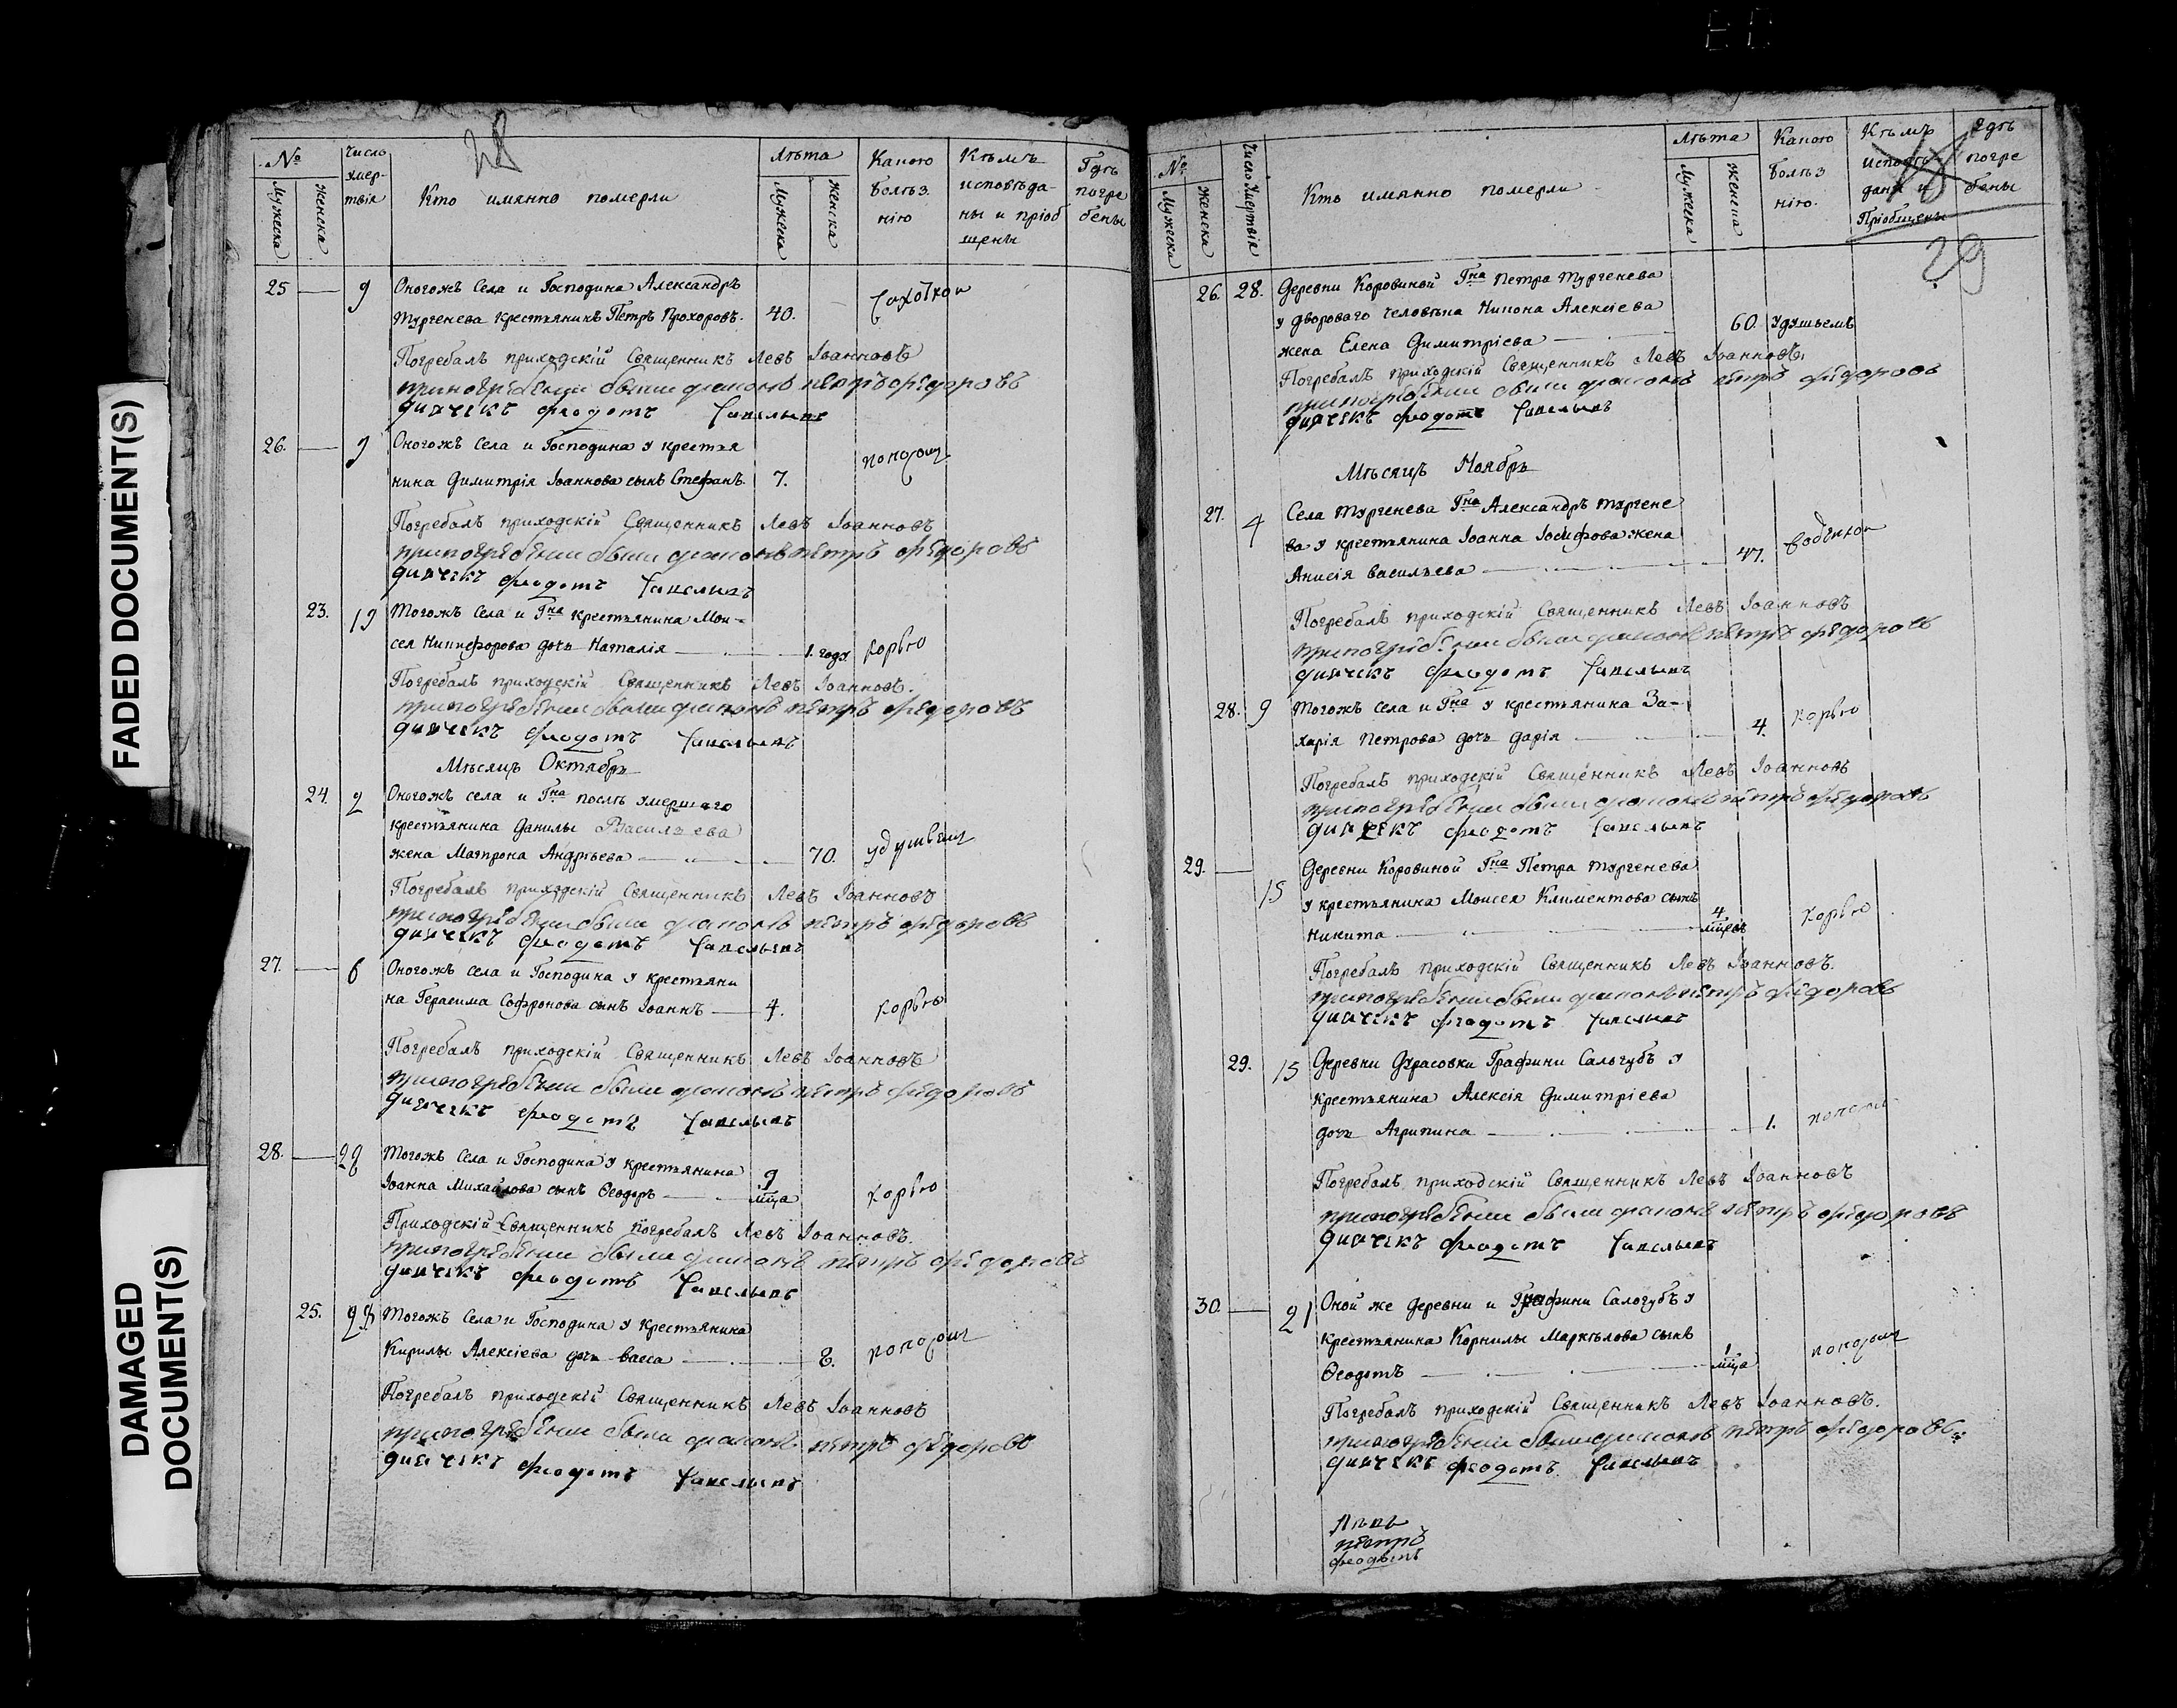 FADED DOCUMENT(S)
DAMAGED
DOCUMENT(S)
28
№
Мужеска
Женска
Число
умер-
твія
Кто имянно померли
Лѣта
Мужеска
Женска
Какою
болѣз
нію
Кѣмъ
исповѣда-
ны и пріоб
щены
Гдѣ
погре
бены
25 9 Оногожъ Села и Господина Александръ
Тургенева крестьянинъ Петръ Прохоровъ. 40. Чахоткою
Погребалъ приходскій Священникъ Левъ Іоанновъ
при погребении были диаконъ петръ федоровъ
дьячекъ феодотъ
26. 9 Оногожъ Села и Господина у крестья
нина Димитрія Іоаннова сынъ Стефанъ. 7. поносом
Погребалъ приходскій Священникъ Левъ Іоанновъ
при погребении были диаконъ петръ федоровъ
дьячекъ феодотъ
23. 19 Тогожъ Села и Гна крестьянина Мои-
сея Никифорова дочь Наталія 1. году корью
Погребалъ приходскій Священникъ Левъ Іоанновъ.
при погребении были диаконъ петръ федоровъ
дьячекъ феодотъ
Мѣсяцъ Октябрь
24. 2 Оногожъ села и Гна послѣ умершаго
крестьянина Данилы Васильева
жена Матрона Андрѣева 70. удушьем
Погребалъ приходскій Священникъ Левъ Іоанновъ
при погребении были диаконъ петръ федоровъ
дьячекъ феодотъ
27. 6 Оногожъ села и Господина у крестьяни
на Герасима Софронова сынъ Іоаннъ 4. корью
Погребалъ приходскій Священникъ Левъ Іоанновъ
при погребении были диаконъ петръ федоровъ
дьячекъ феодотъ
28. Тогожъ Села и Господина у крестьянина 9
Іоанна Михайлова сынъ Ѳеодоръ мца корью
Приходскій Священникъ погребалъ Левъ Іоанновъ.
при погребении были диаконъ петръ федоровъ
дьячекъ феодотъ
25. Тогожъ Села и Господина у крестьянина
Кирилы Алексіева дочь васса 2. поносом
Погребалъ приходскій Священникъ Левъ Іоанновъ
при погребении были диаконъ петръ федоровъ
дьячекъ феодотъ
№
Мужеска
Женска
Число Умертвія
Кто имянно померли
Лѣта
Мужеска
Женска
Какою
болѣз
нію.
Кѣмъ
исповѣ-
даны и
Пріобщены
Гдѣ
погре
бены
29
26. 28. Деревни Коровиной Гна Петра Тургенева
у дворового человѣка Никона Алексіева
жена Елена Димитріева 60. удушьемъ
Погребалъ приходскій Священникъ Левъ Іоанновъ
при погребении были диаконъ петръ федоровъ
дьячекъ феодотъ
Мѣсяцъ Ноябрь
27. 4 Села Тургенева Гна Александръ Тургене
ва у крестьянина Іоанна Іосифова жена
Анисія васильева 47. водяною
Погребалъ приходскій Священникъ Левъ Іоанновъ
при погребении были диаконъ петръ федоровъ
дьячекъ феодотъ
28. 9 Тогожъ села и Гна у крестьянина За-
харія Петрова дочь дарія 4. корью
Погребалъ приходскій Священникъ Левъ Іоанновъ
при погребении были диаконъ петръ федоровъ
дьячекъ феодотъ
29. 15 Деревни Коровиной Гна Петра Тургенева
у крестьянина Моисея Климентова сынъ
никита 4 мцовъ корью
Погребалъ приходскій Священникъ Левъ Іоанновъ.
при погребении были диаконъ петръ федоровъ
дьячекъ феодотъ
29. 15 Деревни Фурасовки Графини Сальгубъ у
крестьянина Алексія Димитріева
дочь Агрипина 1. поносом
Погребалъ приходскій Священникъ Левъ Іоанновъ
при погребении были диаконъ петръ федоровъ
дьячекъ феодотъ
30. 21 Оной же деревни и Графини Салогубъ у
крестьянина Корнилы Маркѣлова сынъ
Ѳеодотъ 1 мца поносом
Погребалъ приходскій Священникъ Левъ Іоанновъ.
при погребении были диаконъ петръ федоровъ
дьячекъ феодотъ
петръ